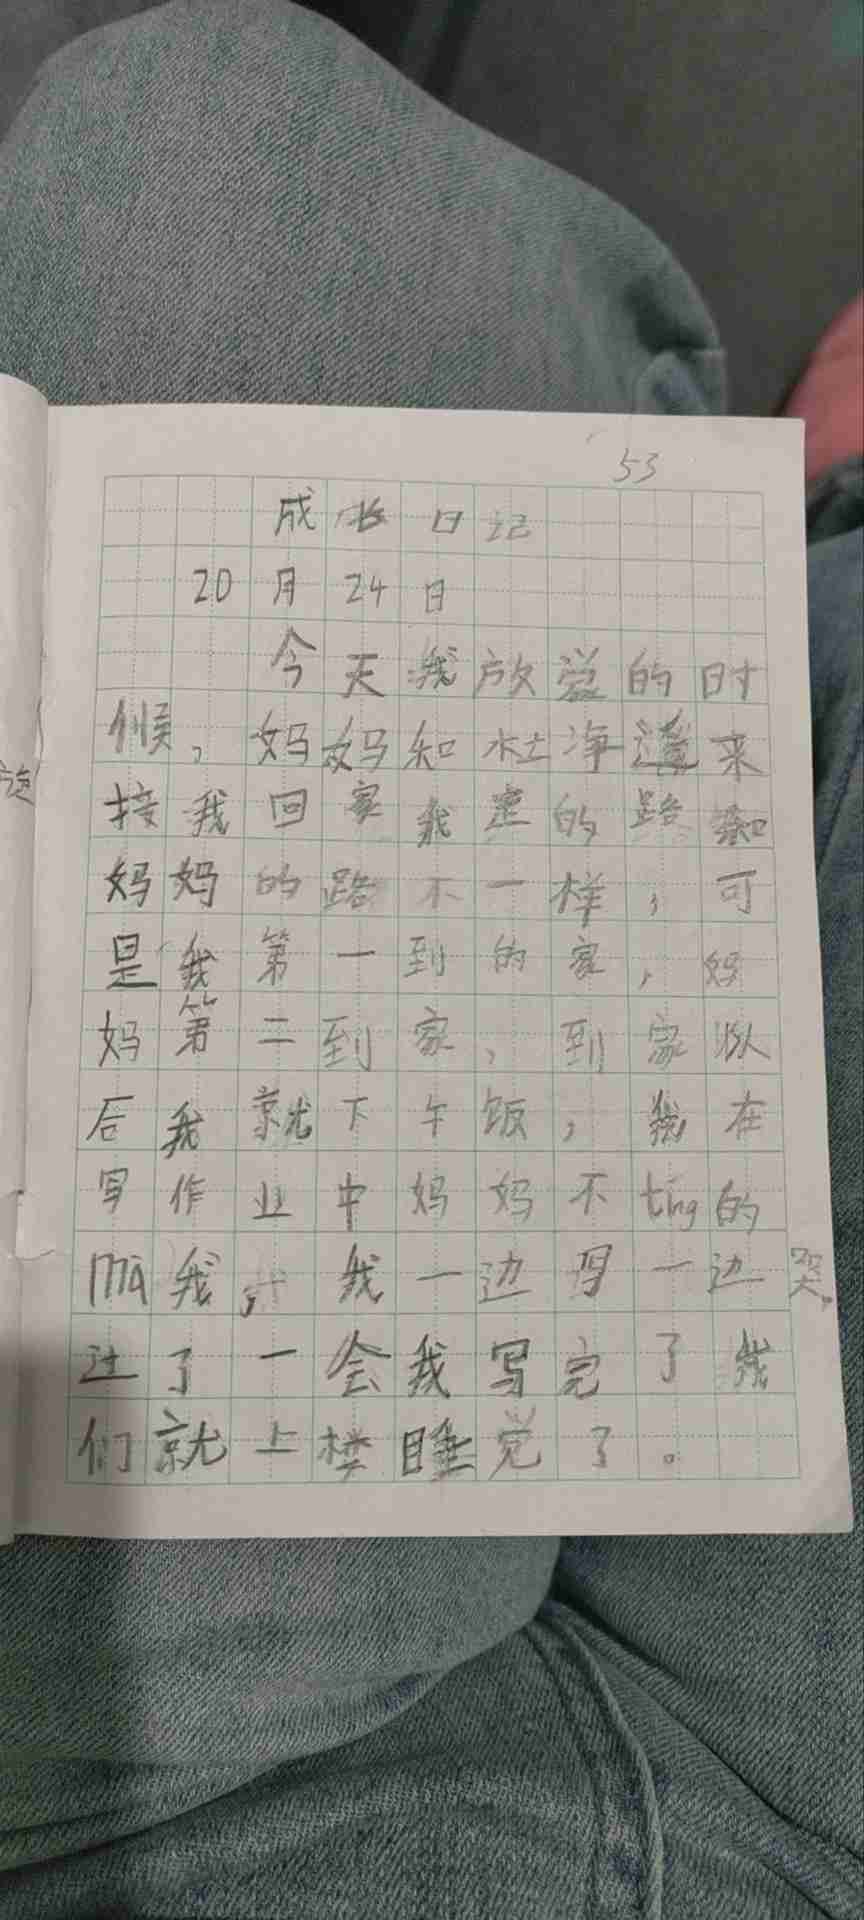 53
成长日记
20月24日
今天我放学的时
候,妈妈和杜净遥来
接我回家我走的路和
妈妈的路不一样,可
是我第一到的家,妈
妈第二到家,到家以
后我就下午饭,我在
写作业中妈妈不tíng的
mà我,我一边写一边哭,
过了一会我写完了我
们就上楼睡觉了。